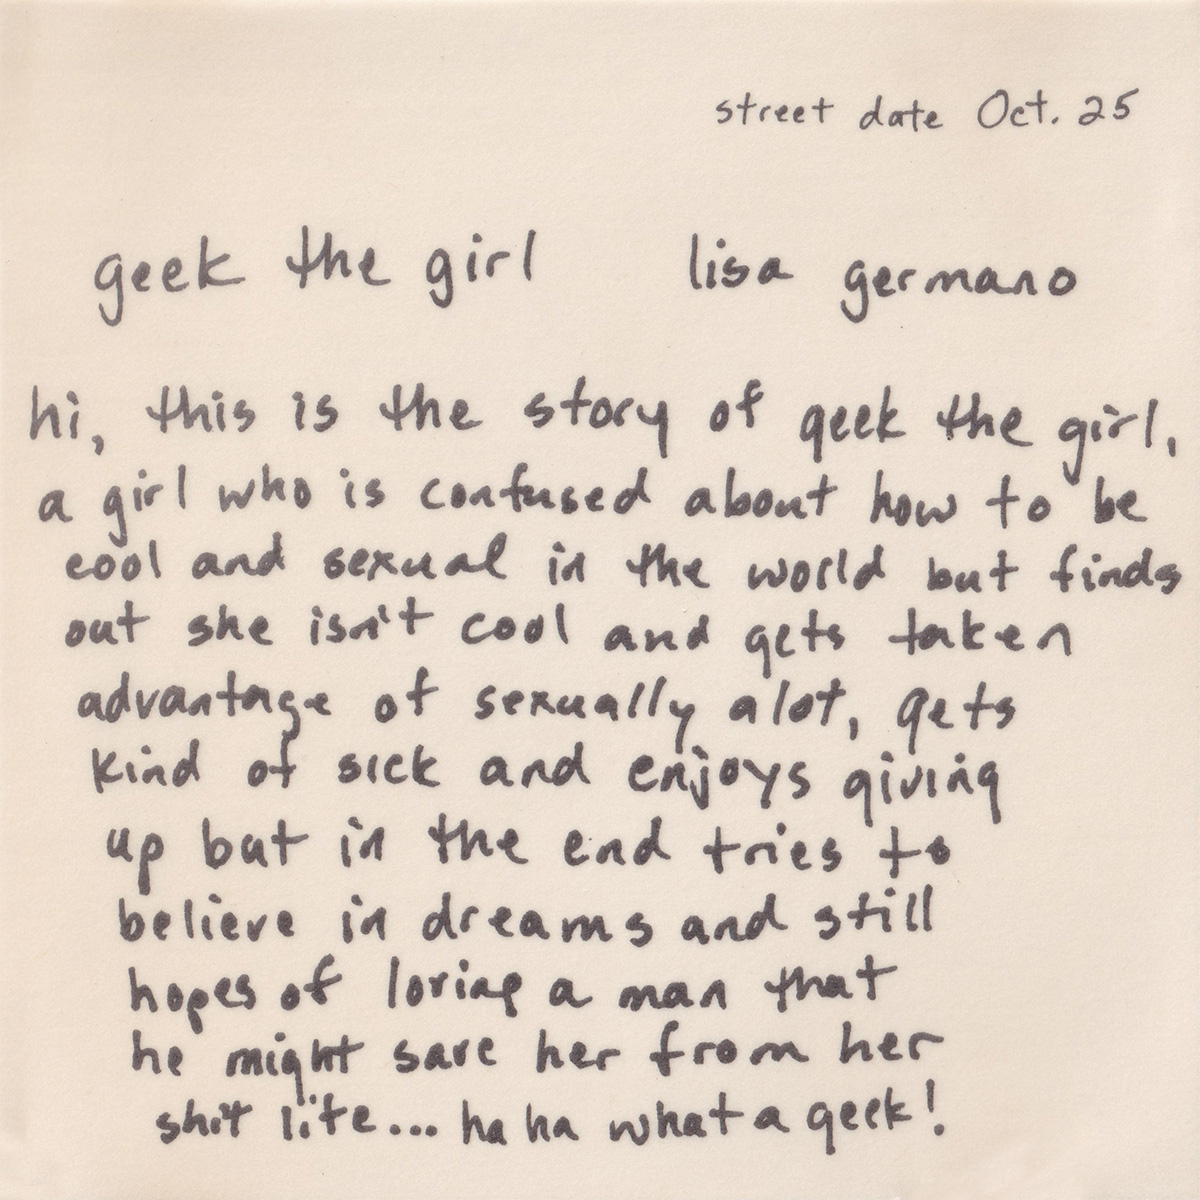 street date Oct. 25
geek the girl lisa germano
hi, this is the story of geek the girl,
a girl who is confused about how to be
cool and sexual in the world but finds
out she isn't cool and gets taken
advantage of sexually alot, gets
kind of sick and enjoys giving
up but in the end tries to
believe in dreams and still
hopes of loving a man that
he might save her from her
shit life... ha ha what a geek!